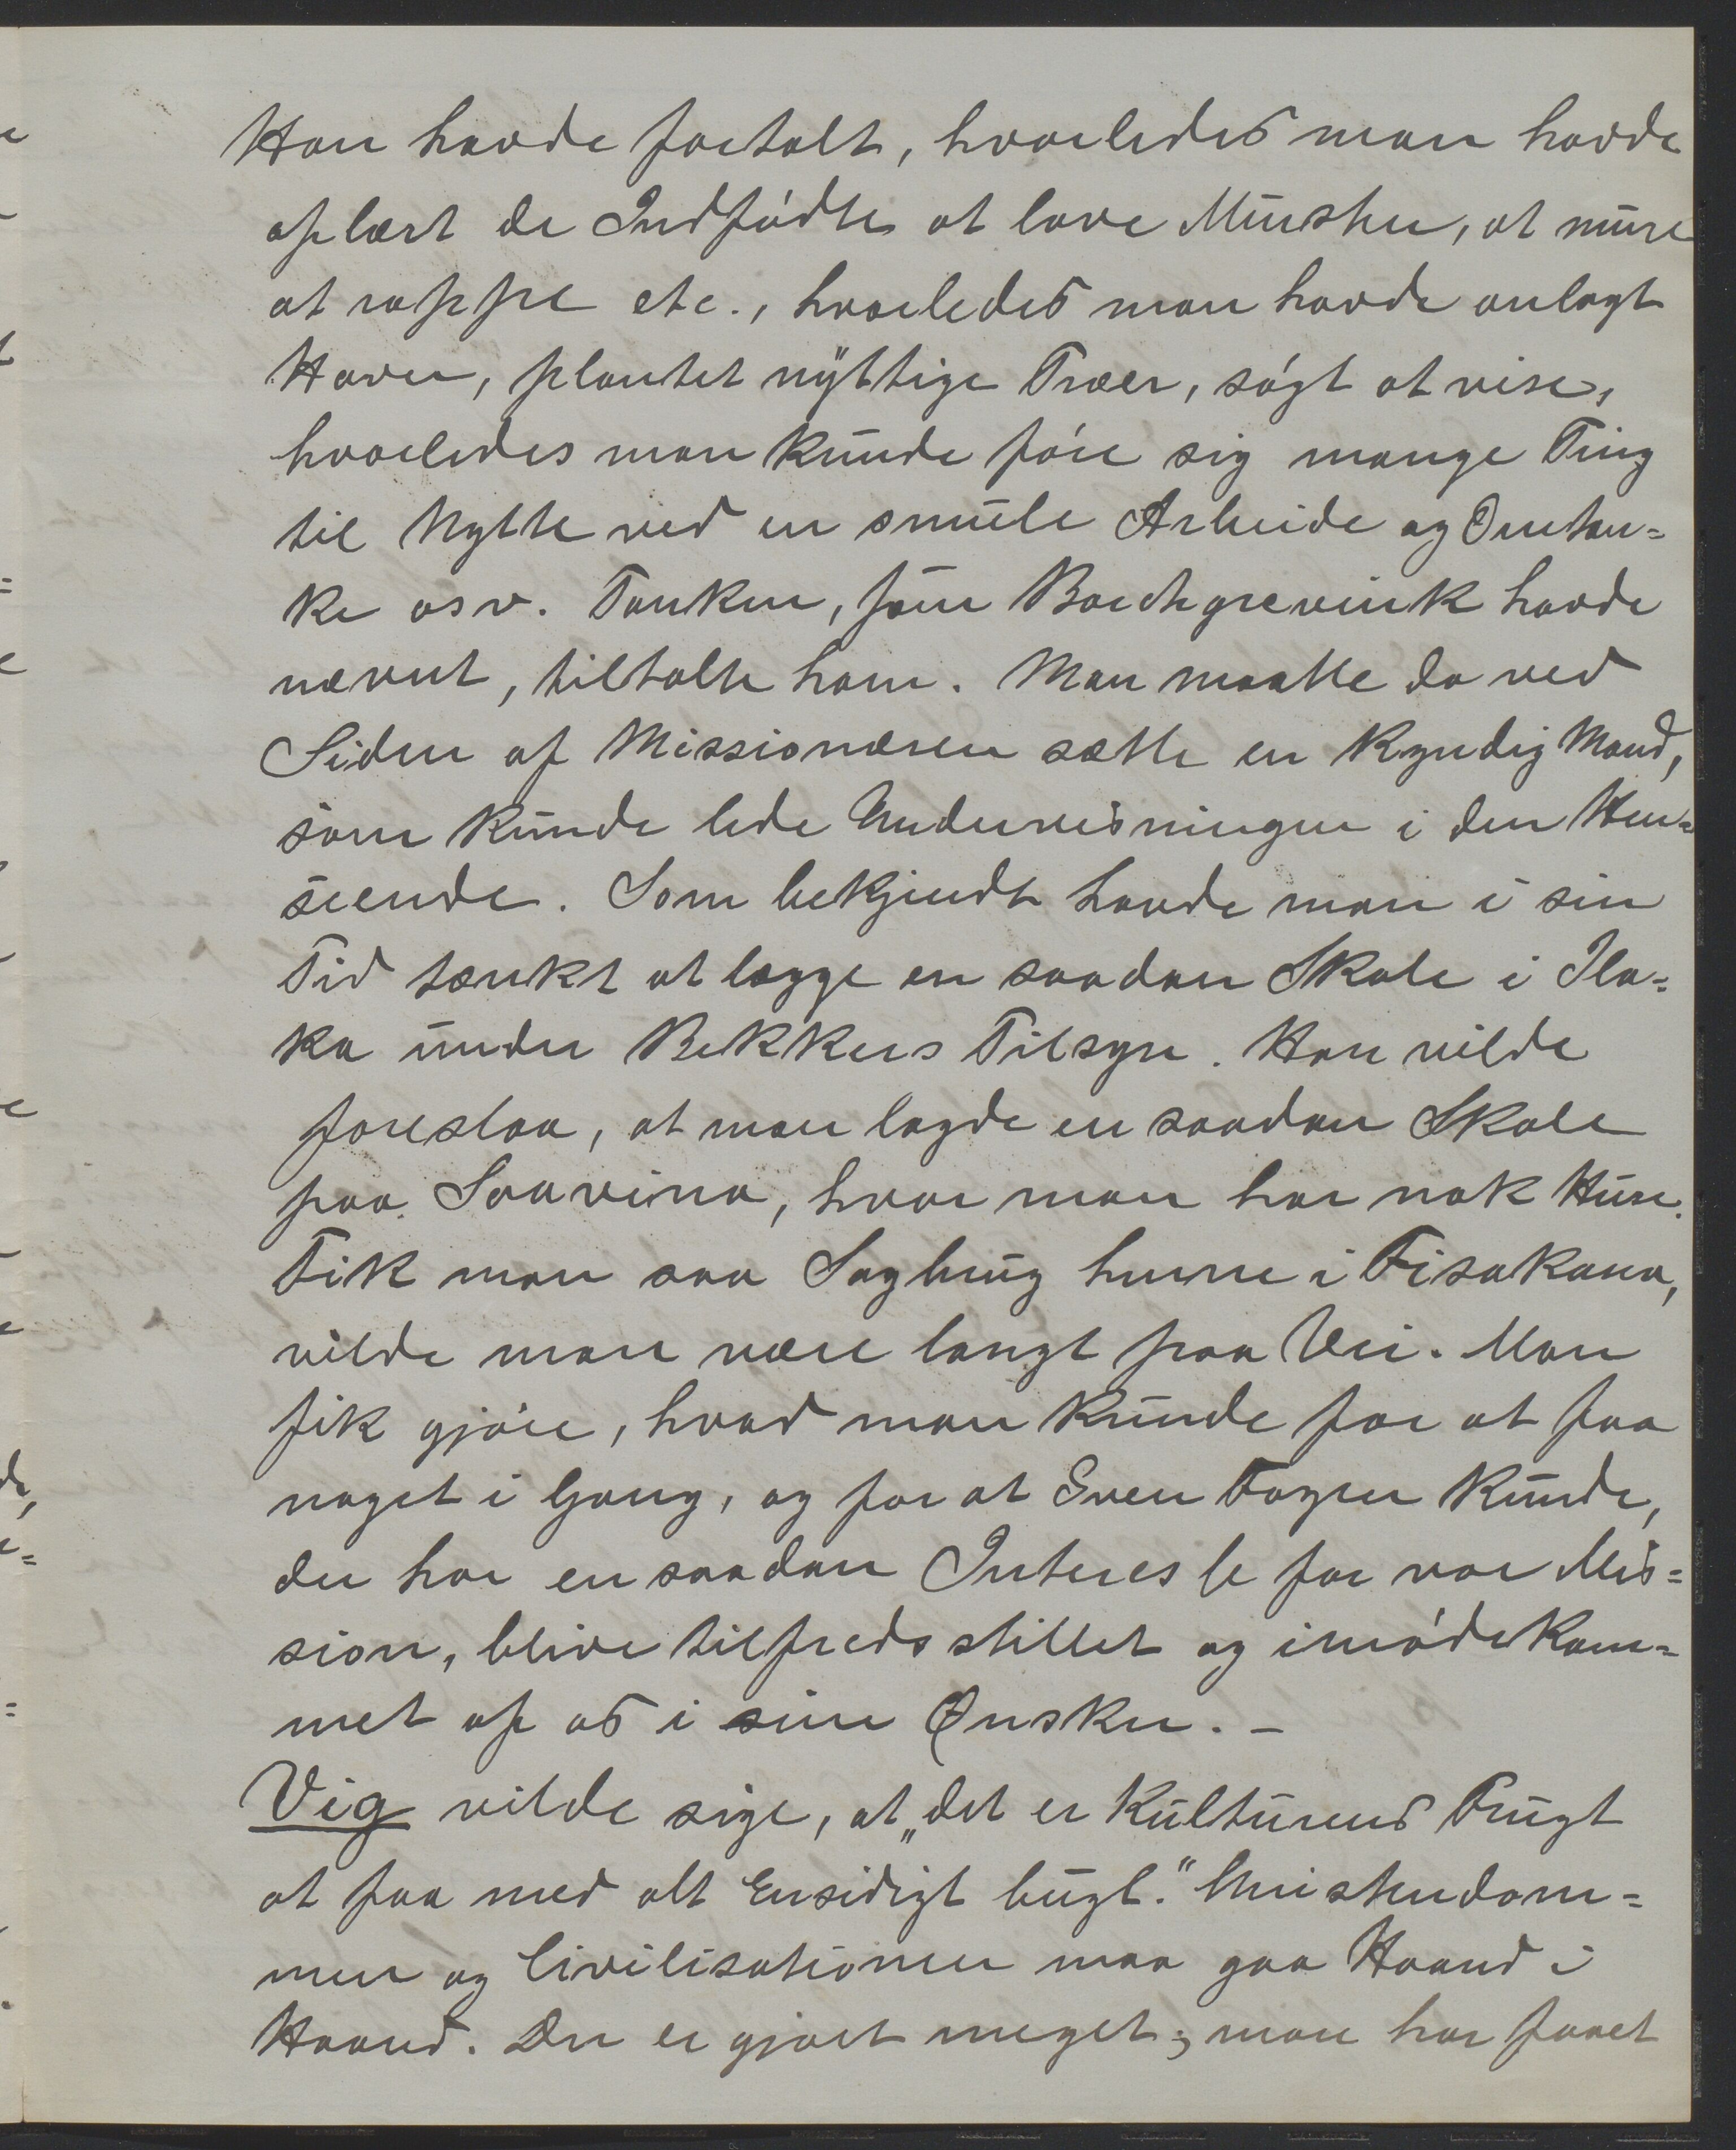 Han havde fortalt, hvorledes man havde
oplært de Indfødte at lave Mursten, at mure
at rappe etc., hvorledes man havde anlagt
Haver, plantet nyttige Træer, søgt at vise,
hvorledes man kunde føre sig mange Ting
til Nytte ved en smule Arbeide og Omtan=
ke osv. Tanken, som Borchgrevink havde
nævnt, tiltalte ham. Man maatte da ved
Siden af Missionæren sætte en kyndig Mand,
som kunde lede Undervisningen i den Hen=
seende. Som bekjendt havde man i sin
Tid tænkt at lægge en saadan Skole i Ila=
ka under Bekkers Tilsyn. Han vilde
foreslaa, at man lagde en saadan Skole
paa Soavina, hvor man har nok Huse.
Fik man saa Sagbrug henne i Fisakana,
vilde man være langt paa Vei. Man
fik gjøre, hvad man kunde for at faa
noget i Gang, og for at Sven Foyen kunde,
der har en saadan Interesse for vor Mis=
sion, blive tilfredsstillet og imødekom=
met af os i sine Ønsker. –
Vig vilde sige, at „det er Kulturens Frugt
at faa med alt Ensidigt bugt." Kristendom=
men og Civilisationen maa gaa Haand i
Haand. Der er gjort meget; man har faaet